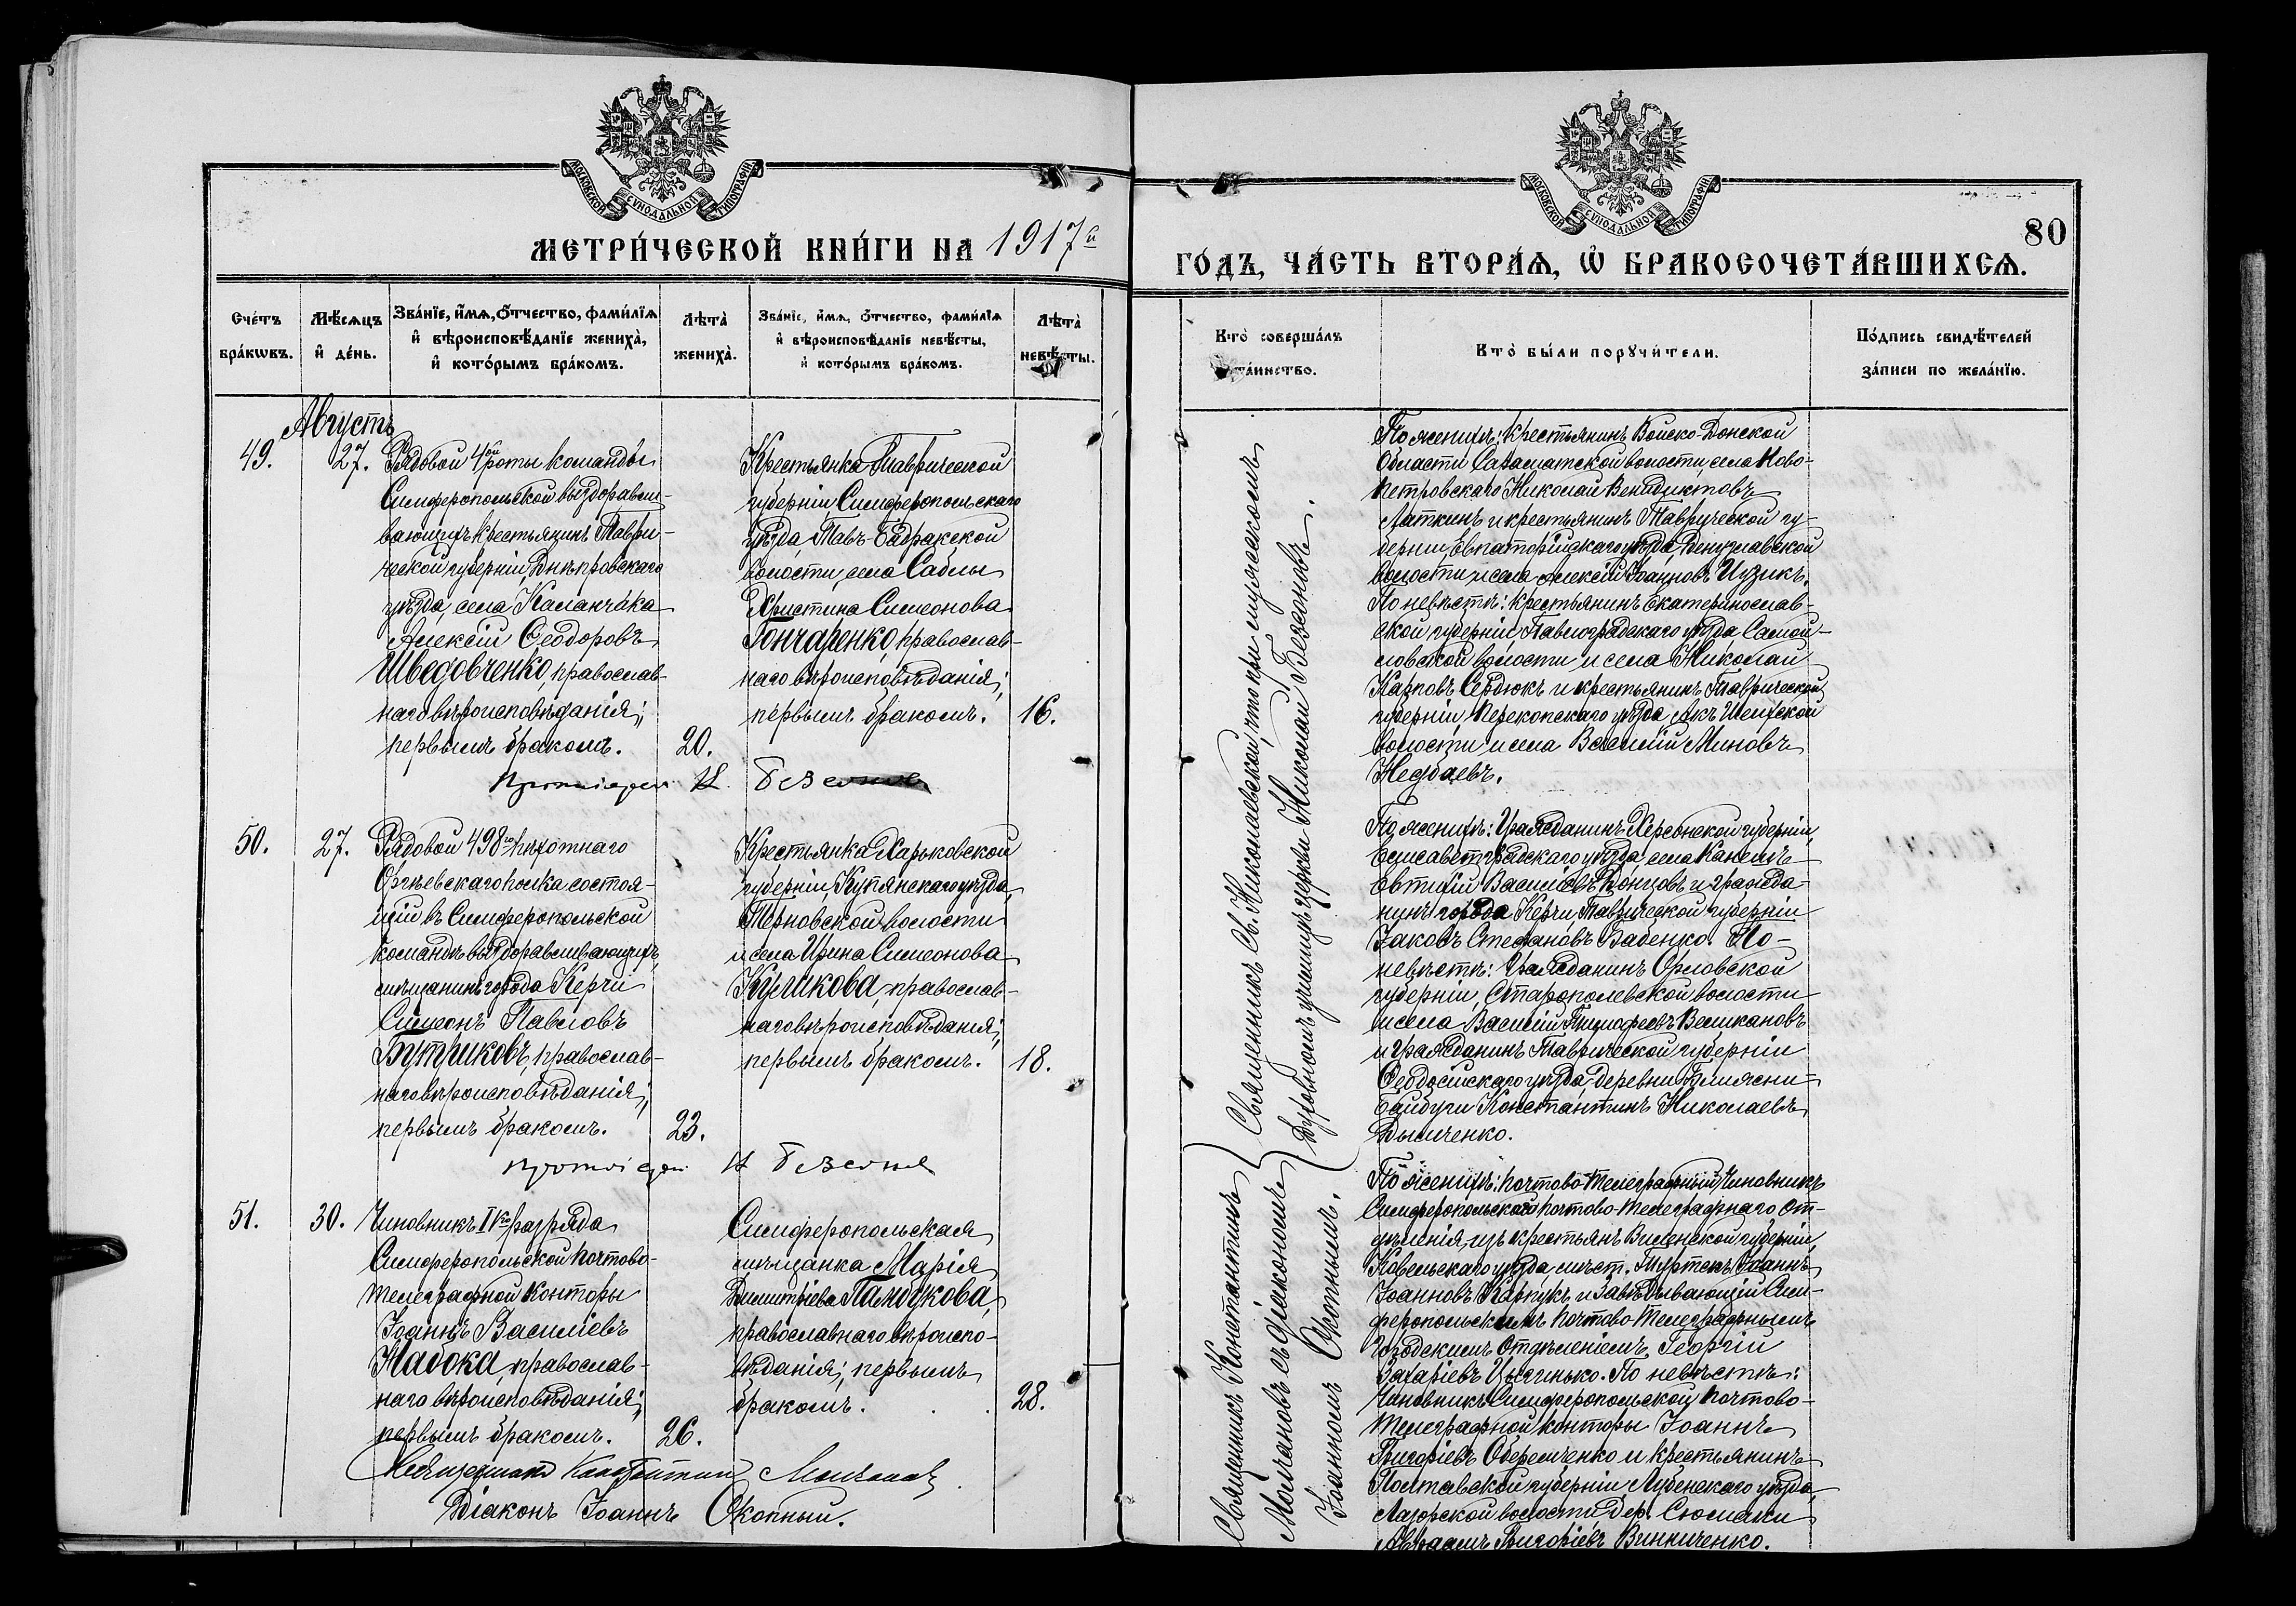 МОСКОВСКОЙ СѴНОДАЛЬНОЙ ТИПОГРАФІИ
МЕТРИ́ЧЕСКОЙ КНИ́ГИ НА 1917й
Сче́тъ бра́кѡвъ.
Мѣ́сяцъ и҆ де́нь.
Зва́нїе, и҆́мѧ, ѻ҆́тчество, фами́лїѧ
и҆ вѣроисповѣ́данїе жениха̀,
и҆ кото́рымъ бра́комъ.
Лѣ́та жениха̀.
Зва́нїе, и҆́мѧ, ѻ҆́тчество, фами́лїѧ
и҆ вѣроисповѣ́данїе невѣ́сты,
и҆ кото́рымъ бра́комъ.
Лѣ́та невѣ́сты.
Августъ
49.
27.
Рядовой 4ой роты команды
Симферопольской выздоравли-
вающихъ крестьянинъ Таври-
ческой губерніи, Днѣпровскаго
уѣзда, села Каланчака
Алексій Ѳеодоровъ
Шведовченко, православ-
наго вѣроисповѣданія;
первымъ бракомъ.
20.
Крестьянка Таврической
губерніи Симферопольскаго
уѣзда, Тавъ-Бадракской
волости, села Саблы
Христина Симеонова
Гончаренко, православ-
наго вѣроисповѣданія;
первымъ бракомъ.
16.
Протоіерей Н.
50.
27.
Рядовой 498го пѣхотнаго
Оргѣевскаго полка состоя-
щій въ Симферопольской
командѣ выздоравливающихъ,
мѣщанинъ города Керчи
Симеонъ Павловъ
Бутриковъ, православ-
наго вѣроисповѣданія;
первымъ бракомъ.
23.
Крестьянка Харьковской
губерніи, Купянскаго уѣзда,
Терновской волости
и села Ирина Симеонова
Куликова, православ-
наго вѣроисповѣданія;
первымъ бракомъ.
18.
Протоіерей Н
51.
30.
Чиновникъ I разряда
Симферопольской почтово-
телеграфной конторы
Іоаннъ Василіевъ
Набока, православ-
наго вѣроисповѣданія;
первымъ бракомъ.
26.
Симферопольская
мѣщанка Марія
Димитріева Памбукова,
православнаго вѣроиспо-
вѣданія; первымъ
бракомъ.
28.
Священникъ Константинъ Молчановъ
Діаконъ Іоаннъ Окопный.
МОСКОВСКОЙ СѴНОДАЛЬНОЙ ТИПОГРАФІИ
80
ГО́ДЪ, ЧА́СТЬ ВТОРА́Ѧ, Ѽ БРАКОСОЧЕТА́ВШИХСѦ.
Кто̀ соверша́лъ та́инство.
Кто̀ бы́ли порꙋчи́тели.
По́дпись свидѣ́телей
за́писи по жела́нїю.
Священникъ Св. Николаевской, что при мужескомъ
Духовномъ училищѣ церкви Николай Безсоновъ.
Священникъ Константинъ
Молчановъ съ діакономъ
Іоанномъ Окопнымъ.
По женихѣ: крестьянинъ Войско-Донской
области волости, села Ново-
петровскаго Николай Венидиктовъ
Латкинъ и крестьянинъ Таврической гу-
берніи, Евпаторійскаго уѣзда, Донузлавской
волости и села Алексій Іоанновъ Цузикъ.
По невѣстѣ: крестьянинъ Екатеринослав-
ской губерніи, Павлоградскаго уѣзда, Самой-
ловской волости и села Николай
Карповъ Сердюкъ и крестьянинъ Таврической
губерніи, Перекопскаго уѣзда, Акъ-Шеихской
волости и села Василій Миновъ
Недбаевъ.
По женихѣ: Гражданинъ Херсонской губерніи,
Елисаветградскаго уѣзда, села
Евтихій Василіевъ и гражда-
нинъ города Керчи Таврической губерніи
Іаковъ Стефановъ Бабенко. По-
невѣстѣ: Гражданинъ Орловской
губерніи, Старополевской волости
и села Василій Тимофеевъ Великановъ
и гражданинъ Таврической губерніи
Ѳеодосійскаго уѣзда, деревни
Константинъ Николаевъ
Дымченко.
По женихѣ: почтово-телеграфный чиновникъ
Симферопольскаго почтово-телеграфнаго от-
дѣленія, изъ крестьянъ Виленской губерніи,
Ковельскаго уѣзда, мѣст. Іоаннъ
Іоанновъ Карпукъ и завѣдывающій Сим-
феропольскимъ почтово-телеграфнымъ
городскимъ отдѣленіемъ, Георгій
Захаріевъ. По невѣстѣ:
Чиновникъ Симферопольской почтово-
телеграфной конторы Іоаннъ
Григоріевъ Оберемченко и крестьянинъ
Полтавской губерніи Лубенскаго уѣзда,
волости, дер.
Авраамъ Григоріевъ Винниченко.